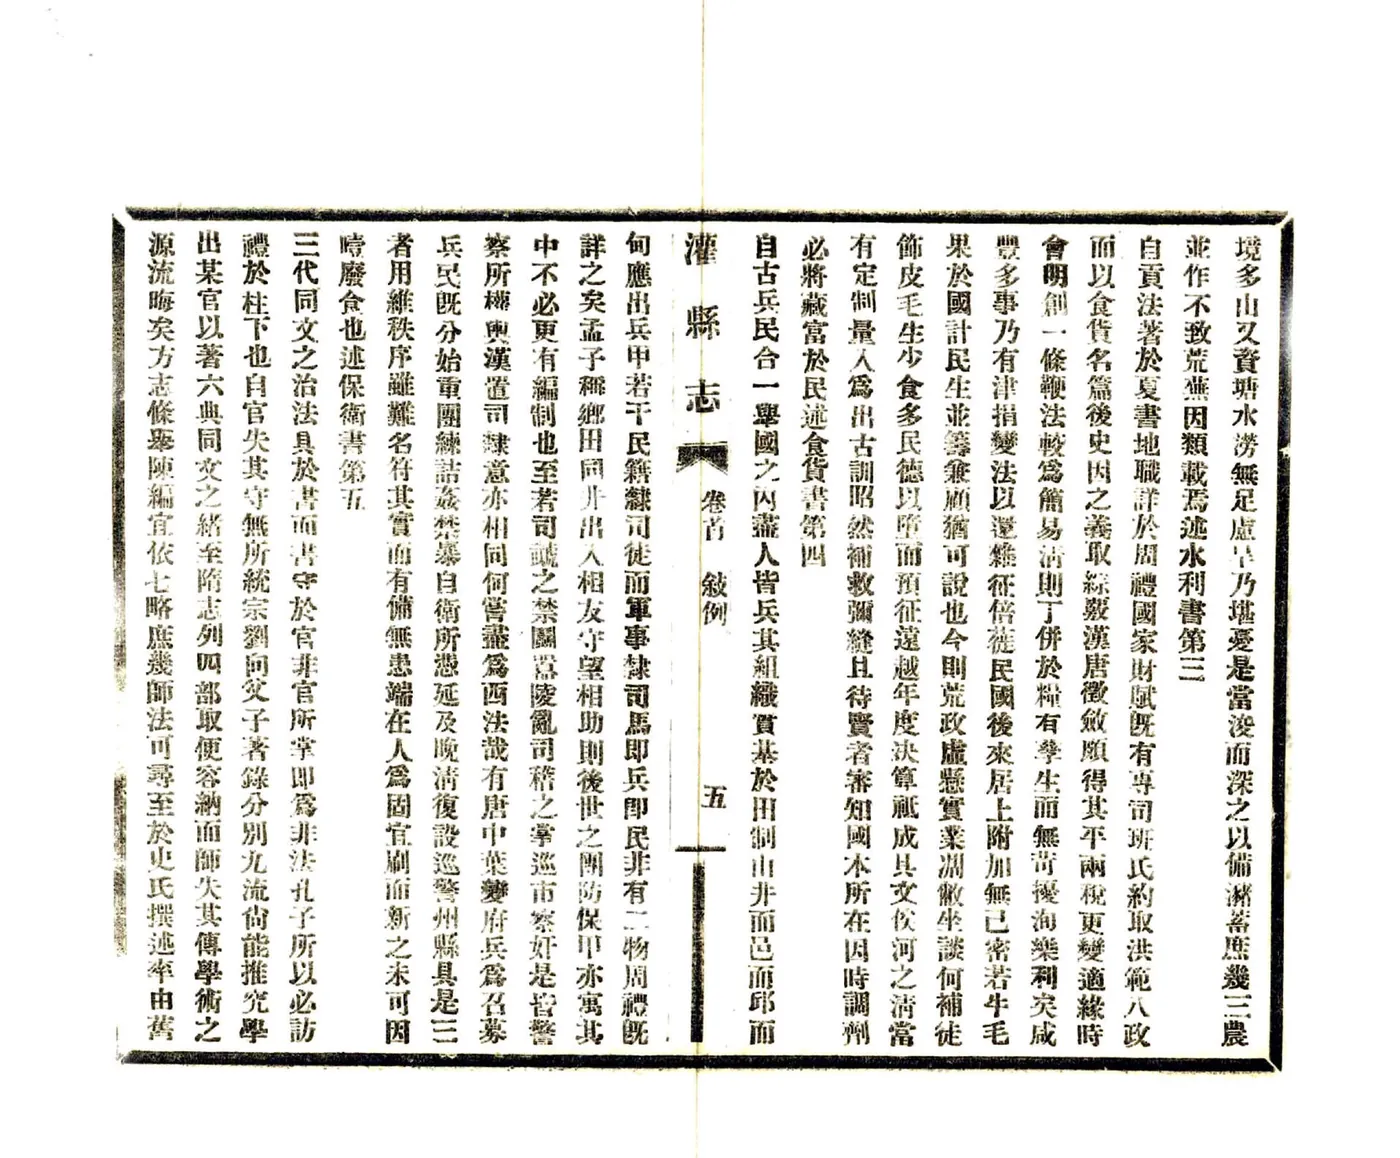 境多山又資塘水澇無足慮旱乃堪憂是當浚而深之以備瀦蓄庶幾三農
並作不致荒蕪因類載焉述水利書第三
自貢法著於夏書地職詳於周禮國家財賦既有專司班氏約取洪範八政
而以食貨名篇後史因之義取綜覈漢唐徵斂願得其平兩稅更變適緣時
會明創一條鞭法較爲簡易淸則丁併於糧有孳生而無苛擾洵樂利矣咸
豐多事乃有津捐變法以還雜征倍蓰民國後來居上附加無已密若牛毛
果於國計民生並籌兼顧猶可說也今則荒政虛懸實業凋敝坐談何補徒
飾皮毛生少食多民德以墮而預征遠越年度決算祗成具文俟河之淸當
有定制量入爲出古訓昭然補救彌縫且待賢者審知國本所在因時調劑
必將藏富於民述食貨書第四
自古兵民合一舉國之內盡人皆兵其組織實基於田制由井而邑而邱而
灌縣志 卷首 敍例 五
甸應出兵甲若干民籍隸司徒而軍事隸司馬即兵即民非有二物周禮既
詳之矣孟子稱鄉田同井出入相友守望相助則後世之團防保甲亦寓其
中不必更有編制也至若司虣之禁鬭囂陵亂司稽之掌巡市察奸是皆警
察所權輿漢置司隸意亦相同何嘗盡爲西法哉有唐中葉變府兵爲召募
兵民既分始重團練詰姦禁暴自衛所憑延及晚淸復設巡警州縣具是三
者用維秩序雖難名符其實而有備無患端在人爲固宜刷而新之未可因
噎廢食也述保衛書第五
三代同文之治法具於書而書守於官非官所掌即爲非法孔子所以必訪
禮於柱下也自官失其守無所統宗劉向父子著錄分別九流尙能推究學
出某官以著六典同文之緒至隋志列四部取便容納而師失其傳學術之
源流晦矣方志條舉陳編宜依七略庶幾師法可尋至於史氏撰述率由舊